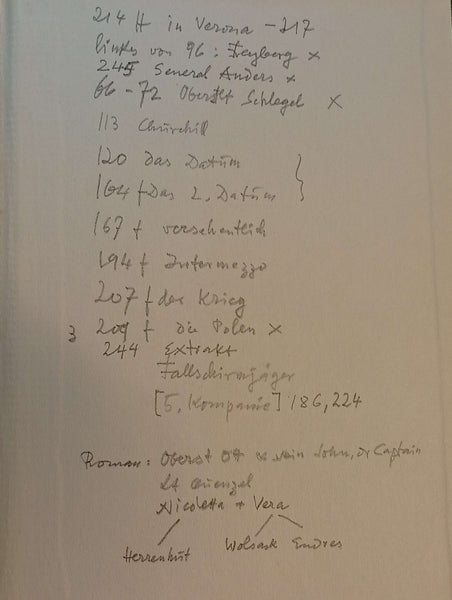 214 H in Verona - 217
links von 96 : Freyberg x
245 General Anders x
66 - 72 Oberstlt Schlegel x
113 Churchill
120 das Datum
164 f Das 2. Datum
167 f versehentlich
194 f Intermezzo
207 f der Krieg
3 209 f die Polen x
244 Extrakt
Fallschirmjäger
[5. Kompanie] 186, 224
Roman: Oberst Ott sein John, Captain
Lt
Nicoletta + Vera
Herrenhut Endres